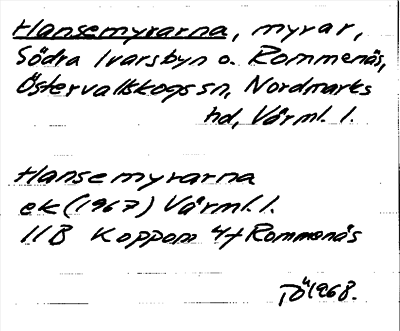 Hansemyrarna, myrar,
Södra Ivarsbyn o. Rommenäs,
Östervallskogs sn, Nordmarks
hd, Värml. l.
Hansemyrarna
ek (1967) Värml. l.
11B Koppom 4f Rommenäs
1968.